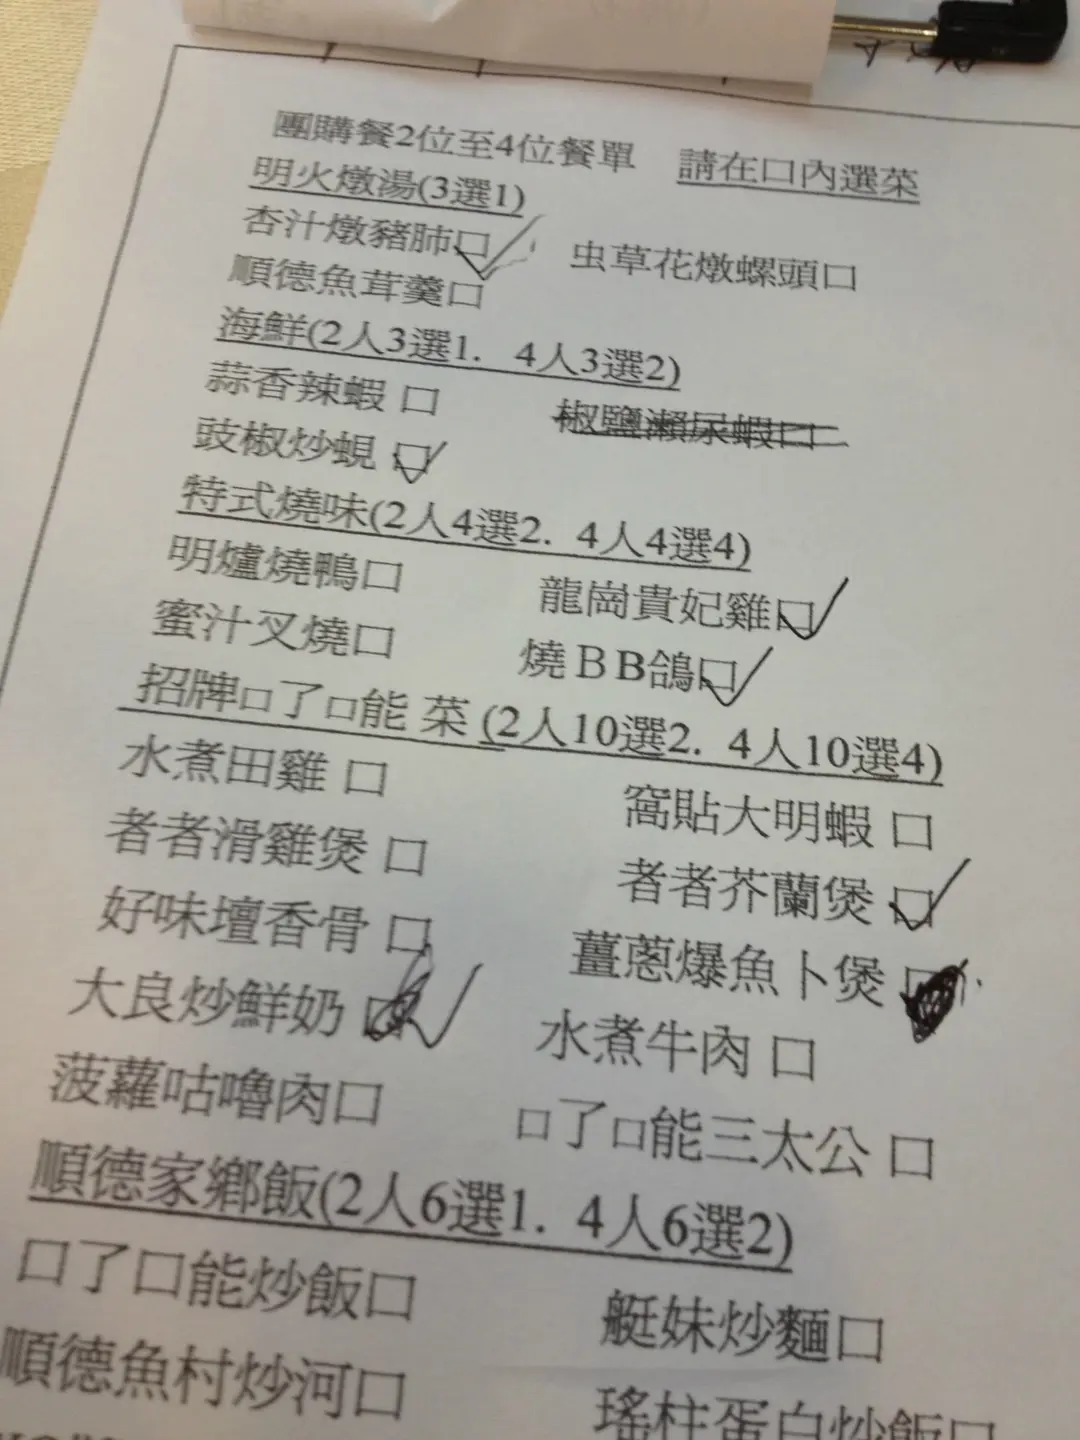 團購餐2位至4位餐單 請在口內選菜
明火燉湯(3選1)
杏汁燉豬肺口 虫草花燉螺頭口
順德魚茸羹口
海鮮(2人3選1. 4人3選2)
蒜香辣蝦 口 椒鹽瀨尿蝦口
豉椒炒蜆 口
特式燒味(2人4選2. 4人4選4)
明爐燒鴨口 龍崗貴妃雞口
蜜汁叉燒口 燒BB鴿口
招牌口了口能 菜 (2人10選2. 4人10選4)
水煮田雞 口 窩貼大明蝦 口
者者滑雞煲 口 者者芥蘭煲 口
好味壇香骨 口 薑蔥爆魚卜煲 口
大良炒鮮奶 口 水煮牛肉 口
菠蘿咕嚕肉口 口了口能三太公 口
順德家鄉飯(2人6選1. 4人6選2)
口了口能炒飯口 艇妹炒麵口
順德魚村炒河口 瑤柱蛋白炒飯口